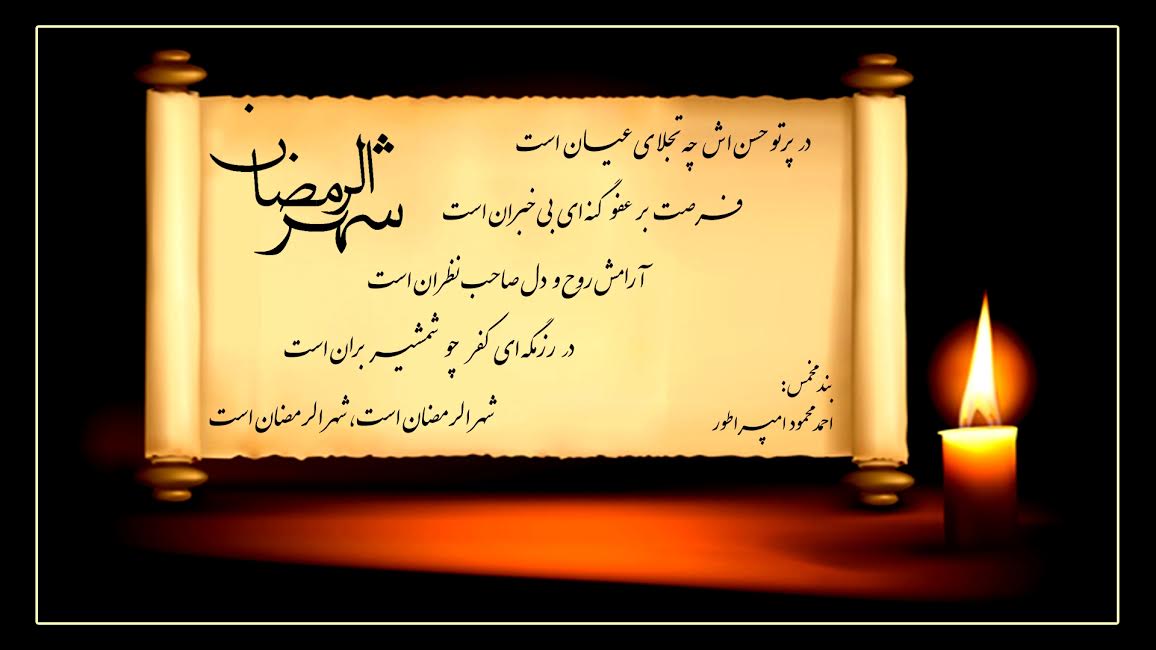 شهر الرمضان
در پرتو حسن اش چه تجلای عیان است
فرصت بر عفو گنه ای بی خبران است
آرامش روح و دل صاحب نظران است
در رزمگه ای کفر چو شمشیر بران است
شهر الرمضان است، شهر الرمضان است
بند مخمس:
احمد محمود امپراطور